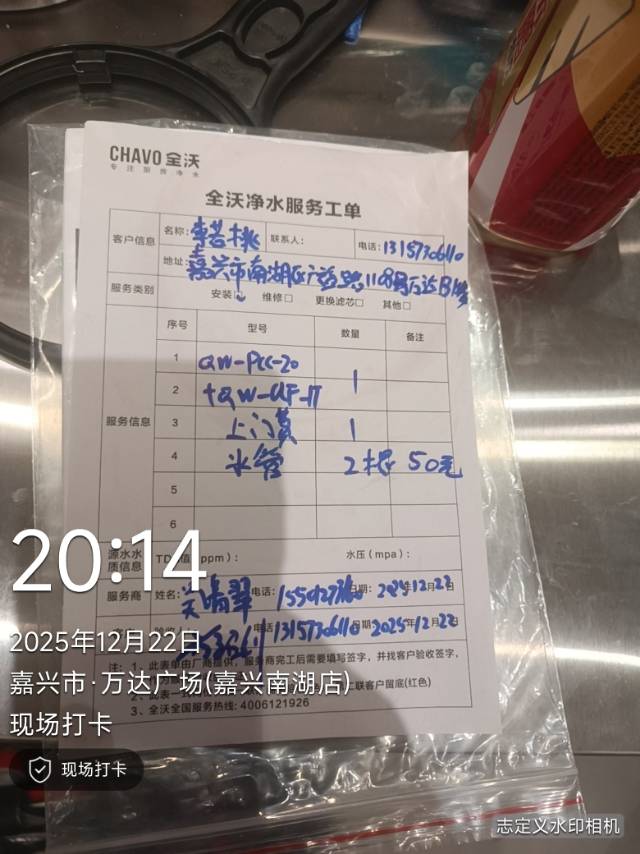 CHAVO 全沃
专注厨房净水
全沃净水服务工单
客户信息 名称: 联系人: 电话: 13157306110
地址: 嘉兴市南湖区广益路1108号万达B1楼
服务类别 安装□ 维修□ 更换滤芯□ 其他□
序号 型号 数量 备注
服务信息
1 QW-PCC-20
2 +QW-UF-17 1
3 上门费 1
4 水管 2根 50元
5
6
源水水质信息 TD 值(ppm): 水压(mpa):
服务商 姓名: 电话: 日期: 2025年12月22日
13157306110 日期 2025年12月22日
注: 1、此表单由厂商提供, 服务商完工后需要填写签字, 并找客户验收签字,
2、此表一 二联客户留底(红色)
3、全沃全国服务热线: 4006121926
20:14
2025年12月22日
嘉兴市·万达广场(嘉兴南湖店)
现场打卡
现场打卡
志定义水印相机